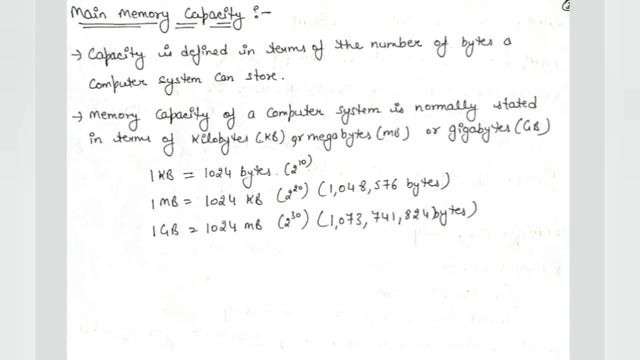 Main Memory Capacity :-
→ Capacity is defined in terms of the number of bytes a
computer system can store.
→ Memory capacity of a computer system is normally stated
in terms of kilobytes (KB) or megabytes (MB) or gigabytes (GB)
1 KB = 1024 bytes. (2^10)
1 MB = 1024 KB (2^20) (1,048,576 bytes)
1 GB = 1024 MB (2^30) (1,073,741,824 bytes)